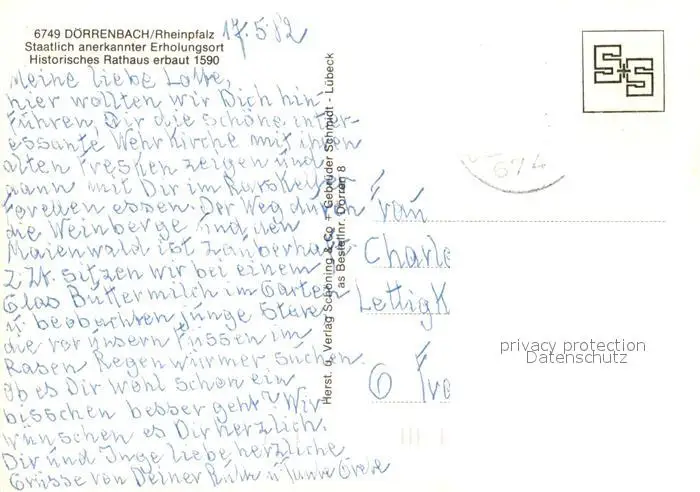 6749 DÖRRENBACH/Rheinpfalz
Staatlich anerkannter Erholungsort
Historisches Rathaus erbaut 1590
17.5.82
Meine liebe Lotte,
hier wollten wir Dich hin-
führen, Dir die schöne, inter-
essante Wehrkirche mit ihren
alten Fresken zeigen und
dann mit Dir im Ratskeller
Forellen essen. Der Weg durch
die Weinberge und den
Maienwald ist zauberhaft
z. Zt. sitzen wir bei einem
Glas Buttermilch im Garten
u. beobachten junge Stare
die vor unsern Füssen im
Rasen Regenwürmer suchen.
Ob es Dir wohl schon ein
bisschen besser geht? Wir
wünschen es Dir herzlich.
Dir und Inge liebe herzliche
Grüsse von Deiner Ruth u. Tante Grete
Herst. u. Verlag Schöning & Co + Gebrüder Schmidt - Lübeck
as Bestellnr. Dörren 8
S+S
674
Frau
Charlo
Lettigk
6 Fra
privacy protection
Datenschutz